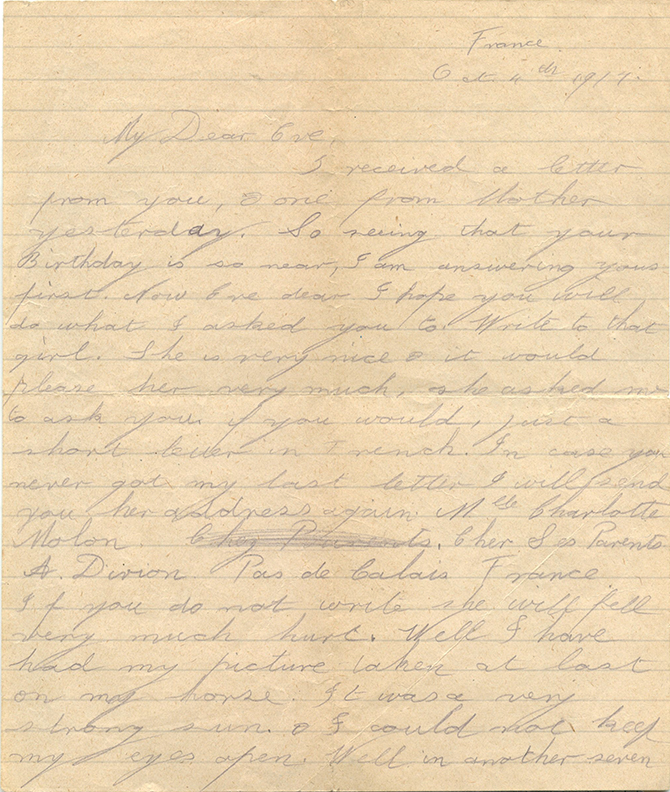 France
Oct. 4th 1917.
My Dear Eve,
I received a letter
from you, & one from Mother
yesterday. So seeing that your
Birthday is so near, I am answering yours
first. Now Eve dear I hope you will
do what I asked you to. Write to that
girl. She is very nice & it would
please her very much, she asked me
to ask you if you would, just a
short letter in French. In case you
never got my last letter I will send
you her address again. Melle Charlotte
Molon Chez Parents. Cher Ses Parents
A. Divion Pas de Calais France
If you do not write she will fell
very much hurt. Well I have
had my picture taken at last
on my horse. It was a very
strong sun. & I could not keep
my eyes open. Well in another seven